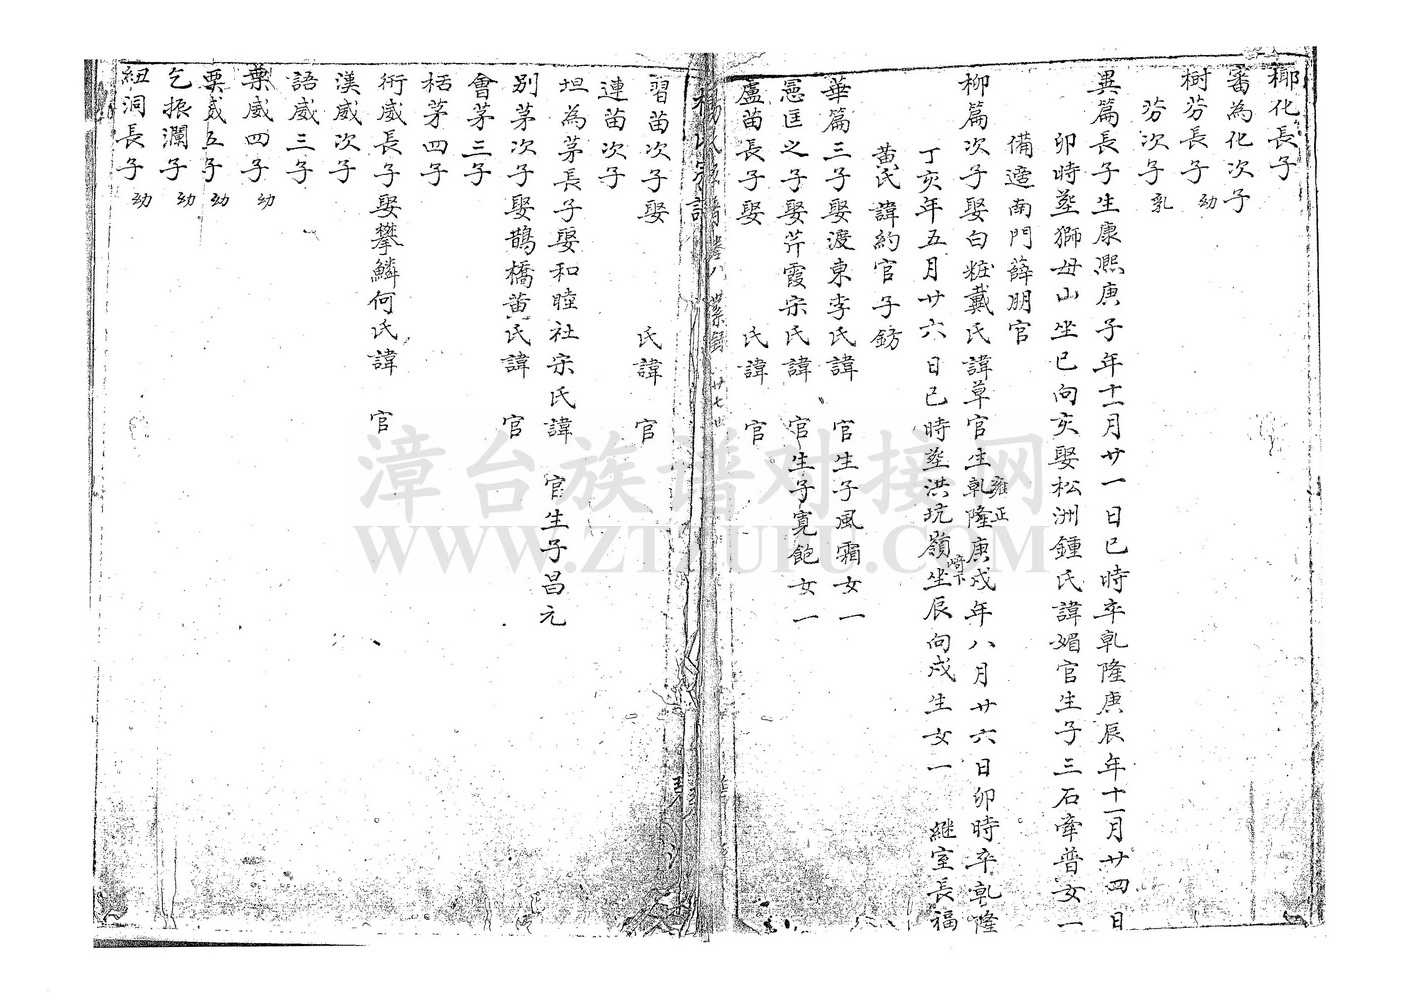 椰化長子
番為化次子
樹芬長子 幼
芬次子 乳
異篇長子生康熙庚子年十一月廿一日巳時卒乾隆庚辰年十一月廿四日
卯時塟獅母山坐巳向亥娶松洲鍾氏諱媚官生子三石牽普女一
備適南門薛朋官
柳篇次子娶白粧戴氏諱草官生乾隆雍正庚戌年八月廿六日卯時卒乾隆
丁亥年五月廿六日巳時塟洪坑嶺崎下坐辰向戌生女一 継室長福
黃氏諱約官子鈁
華篇三子娶渡東李氏諱 官生子風霜女一
匡之子娶芹霞宋氏諱 官生子寬飽女一
盧苗長子娶 氏諱 官
楊氏宗譜 卷八 世錄 廿七世
習苗次子娶 氏諱 官
連苗次子
坦為茅長子娶和睦社宋氏諱 官生子昌元
別茅次子娶鵲橋黄氏諱 官
會茅三子
栝茅四子
衍威長子娶攀鱗何氏諱 官
漢威次子
語威三子
葉威四子 幼
栗威五子 幼
乞振瀾子 幼
紐洞長子 幼
漳台族谱对接网
WWW.ZTZUPU.COM